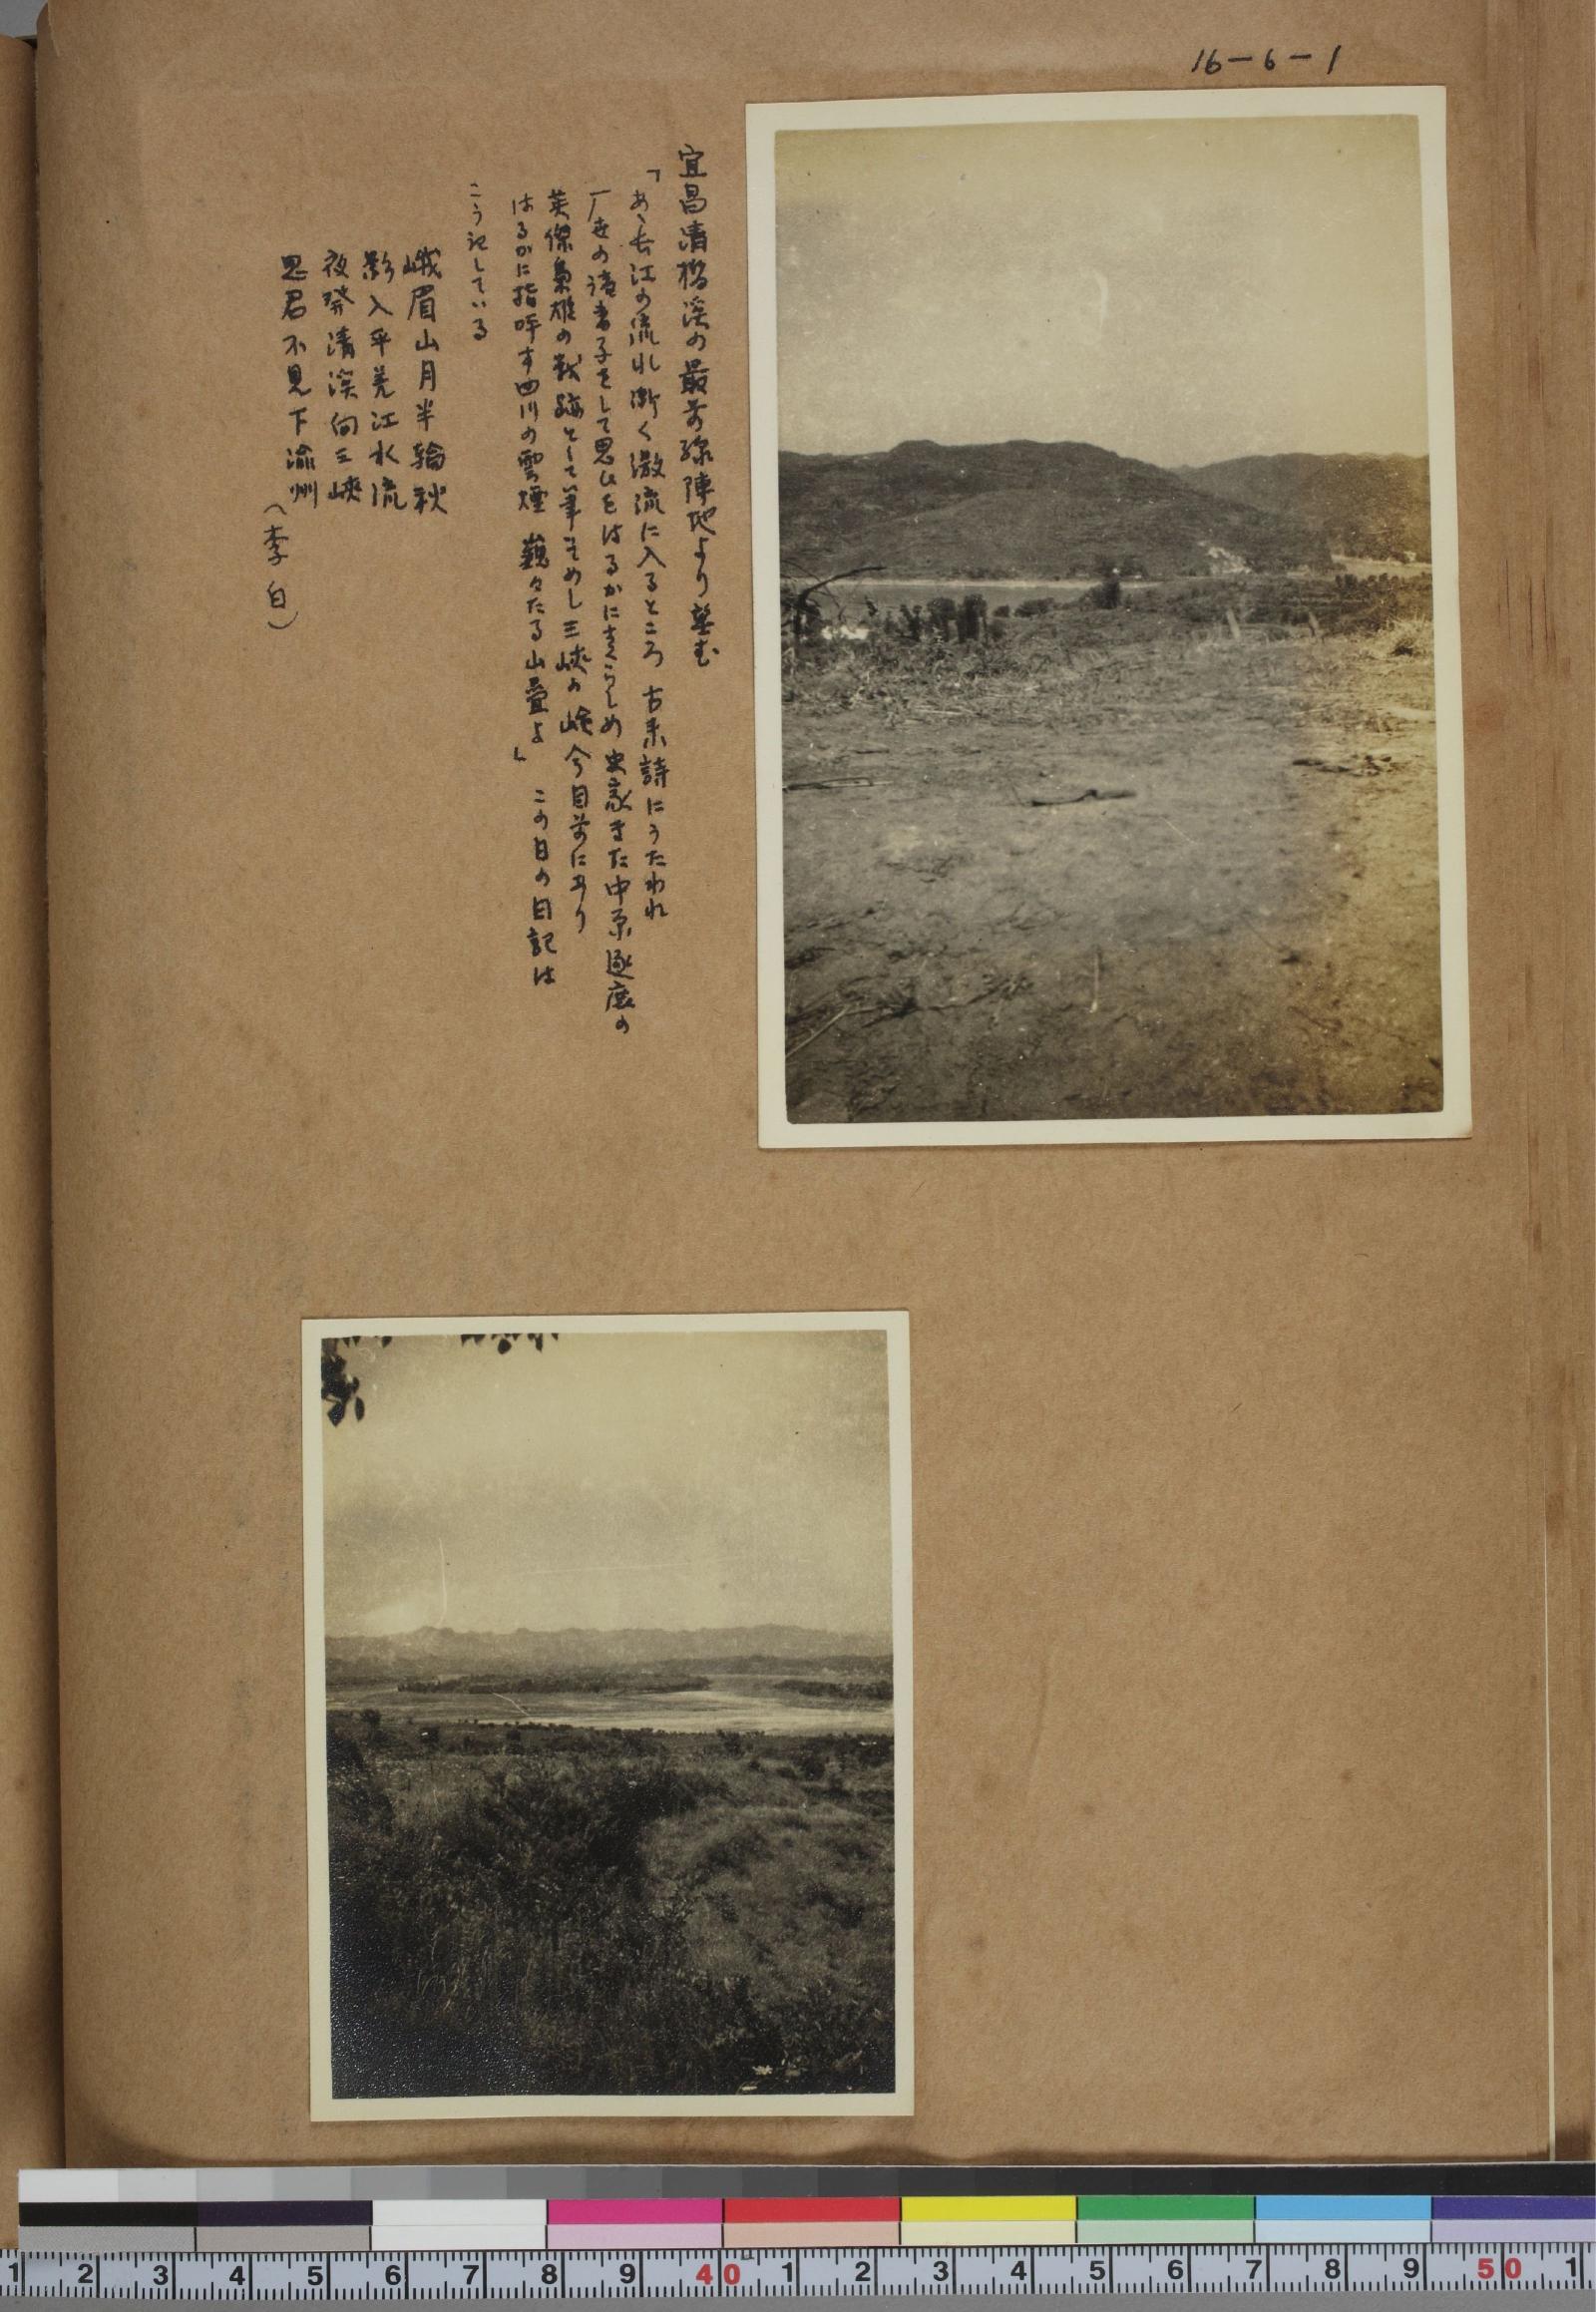 16-6-1
宜昌清檜渓の最前線陣地より望む
「あゝ長江の流れ漸く激流に入るところ 古来詩にうたわれ
一世の読書子をして思ひをはるかにきらしめ 史家また中原逐鹿の
英傑梟雄の戦跡として筆をそめし三峡の嶮 今目前にあり
はるかに指呼す四川の雲煙 巍々たる山畳よ」 この日の日記は
こう記している
峨眉山月半輪秋
影入平羌江水流
夜発清渓向三峡
思君不見下渝州
(李白)
1 2 3 4 5 6 7 8 9 40 1 2 3 4 5 6 7 8 9 50 1